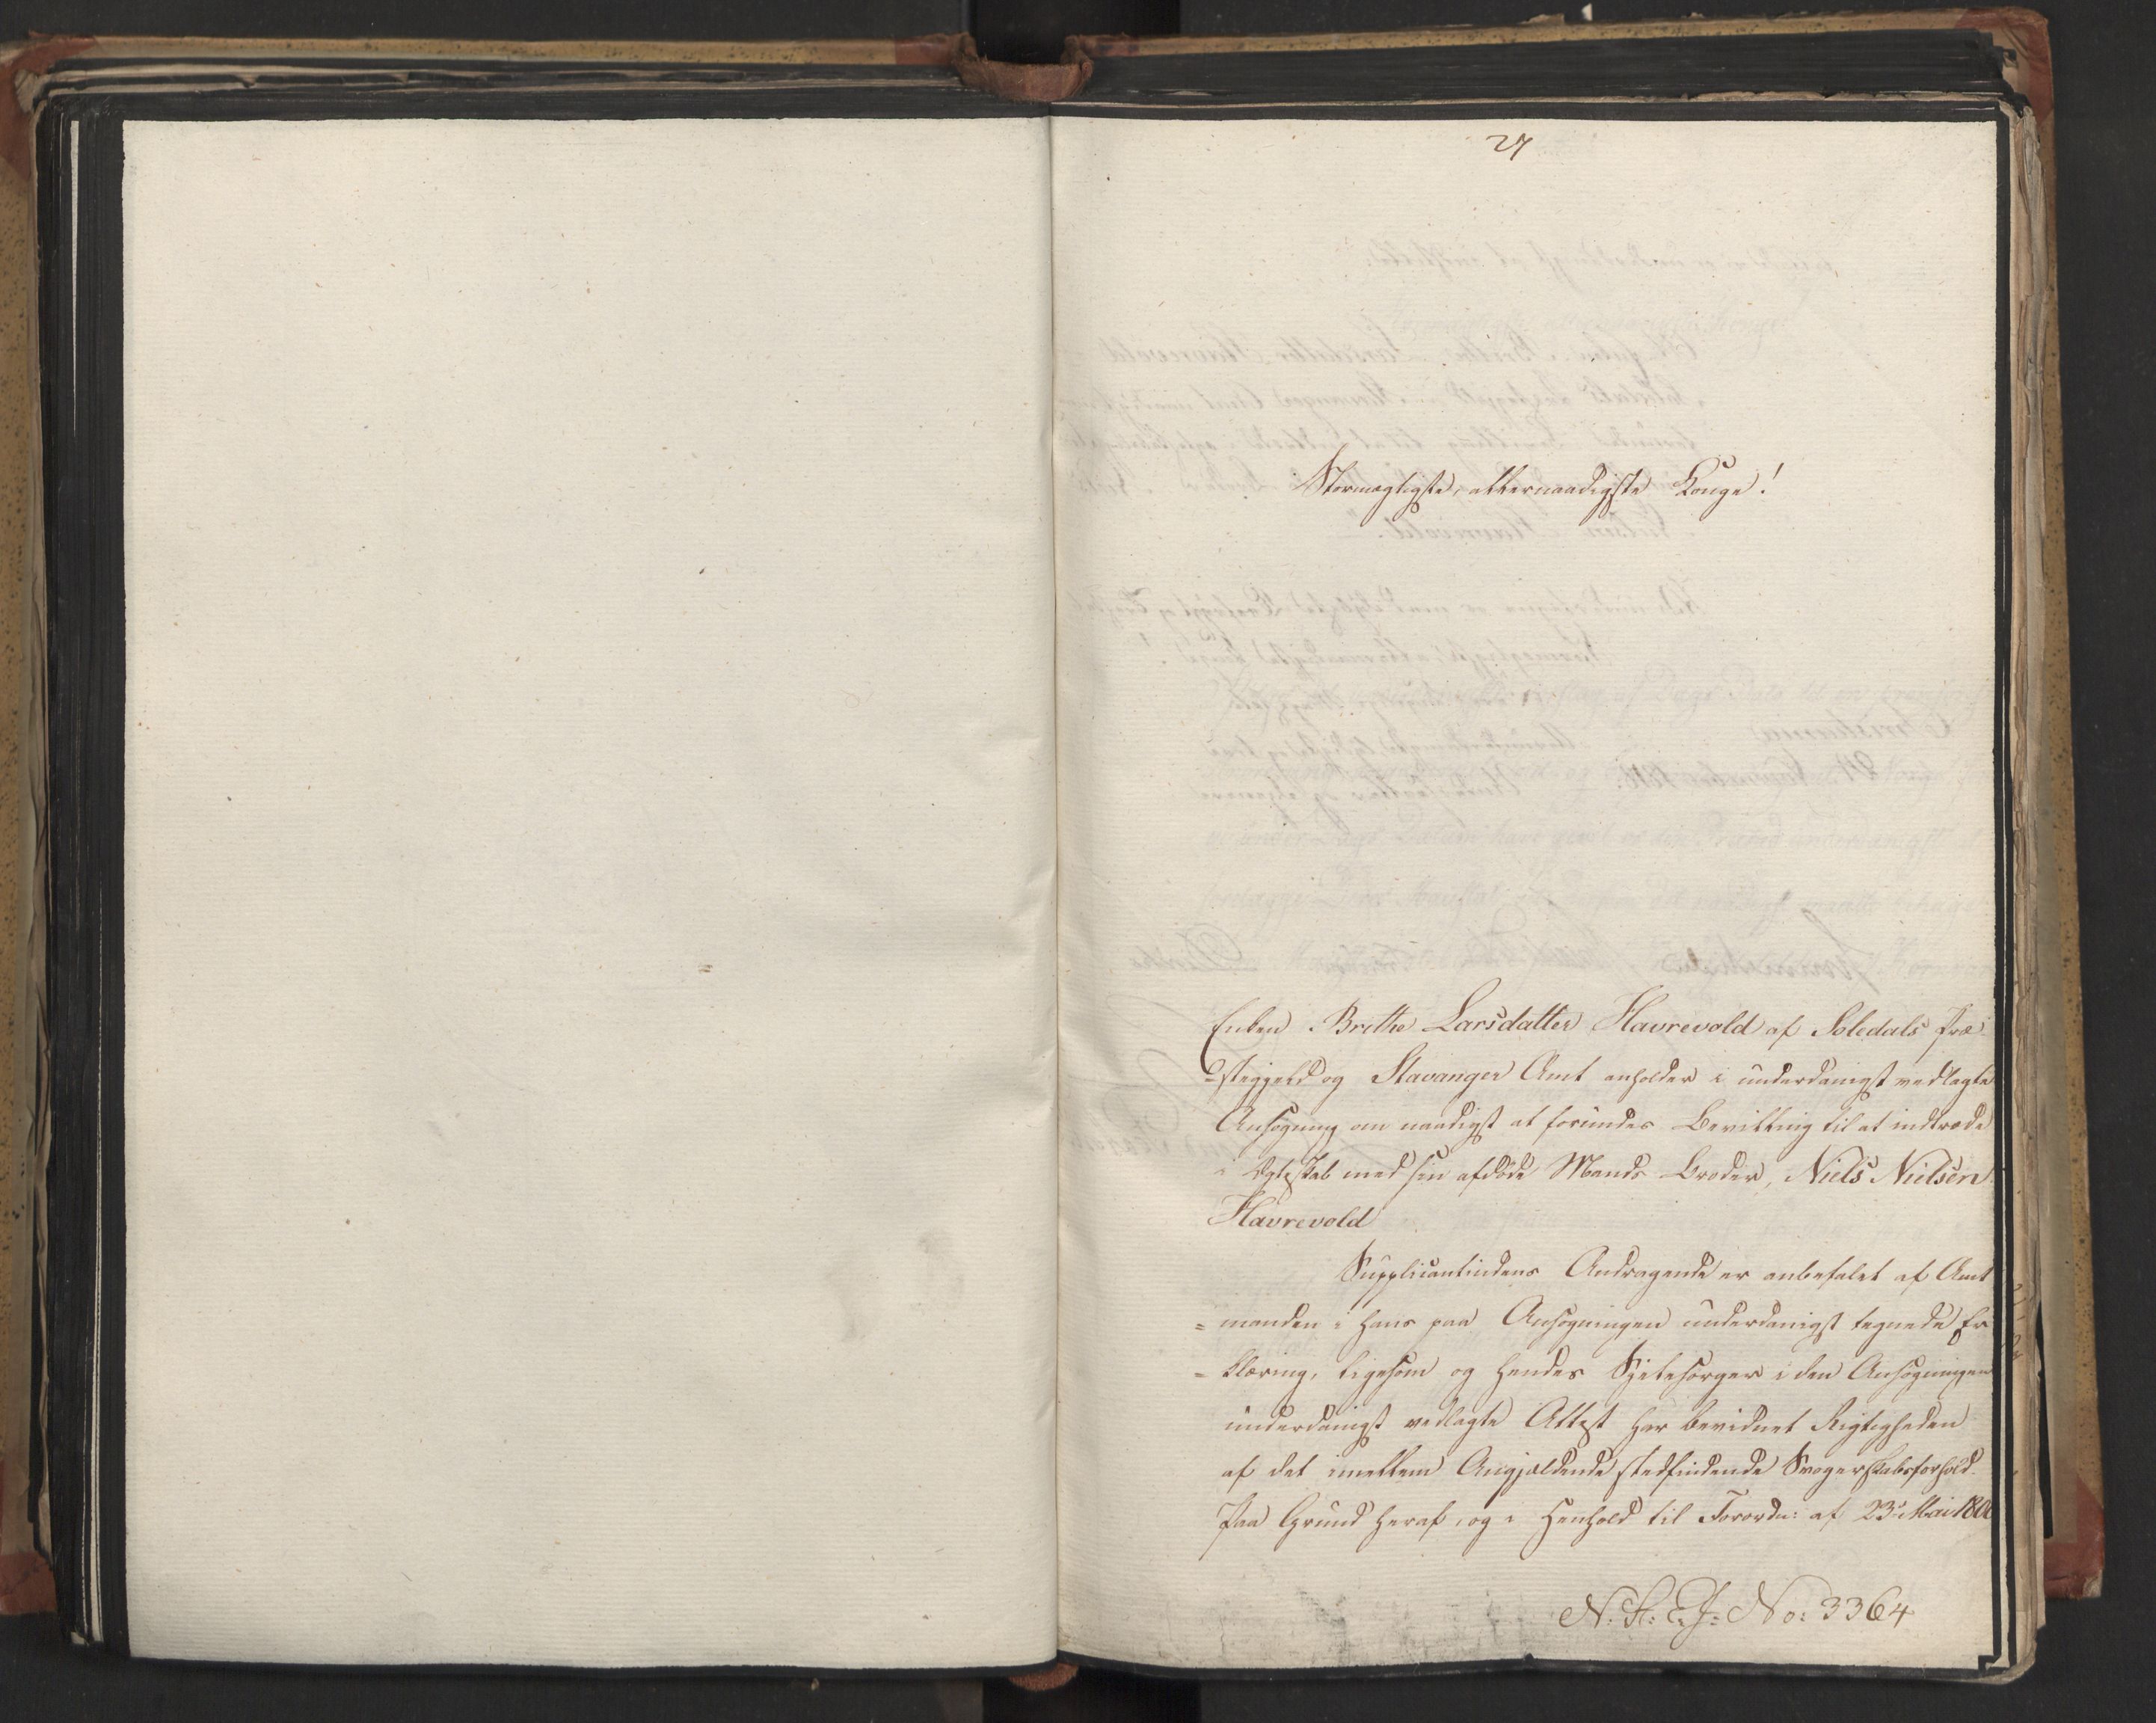 27
Stormægtigste, allernaadigste Konge!
Enken Brithe Larsdatter Havrevold af Soledals Præ-
-stegjeld og Stavanger Amt anholder i underdanigst vedlagte
Ansøgning om naadigst at forundes Bevilling til at indtræde
i Ægteskab med sin afdøde Mands Broder, Niels Nielsen
Havrevold
Supplicantindens Andragende er anbefalet af Amt
= manden i hans paa Ansøgningen underdanigst tegnede Er
= klæring, ligesom og hendes Sjelesørger i den Ansøgningen
underdanigst vedlagte Attest har bevidnet Rigtigheden
af det imellem Angjældende stedfindende Svogerskabsforhold.
Paa Grund heraf, og i Henhold til Forordn: af 23 Mai 1800
N. St: E. J: No: 3364